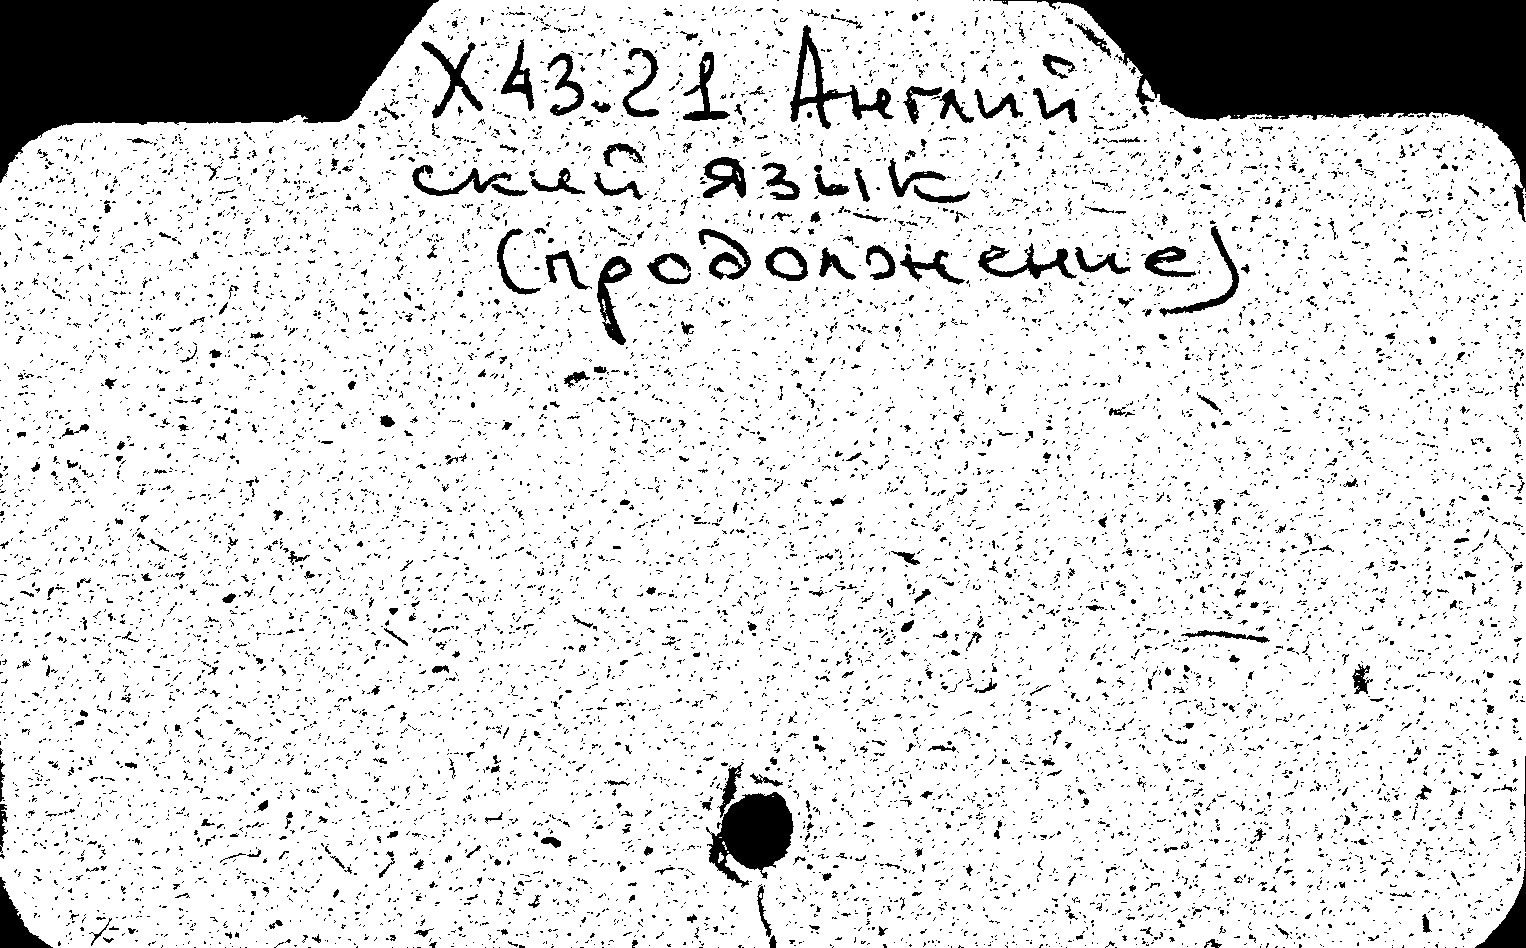 Х43.21 Англий
ский язык
(продолжение)